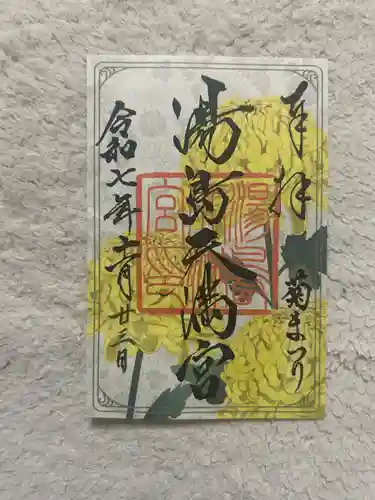 奉拝
菊まつり
湯島天満宮
令和七年十一月廿二日